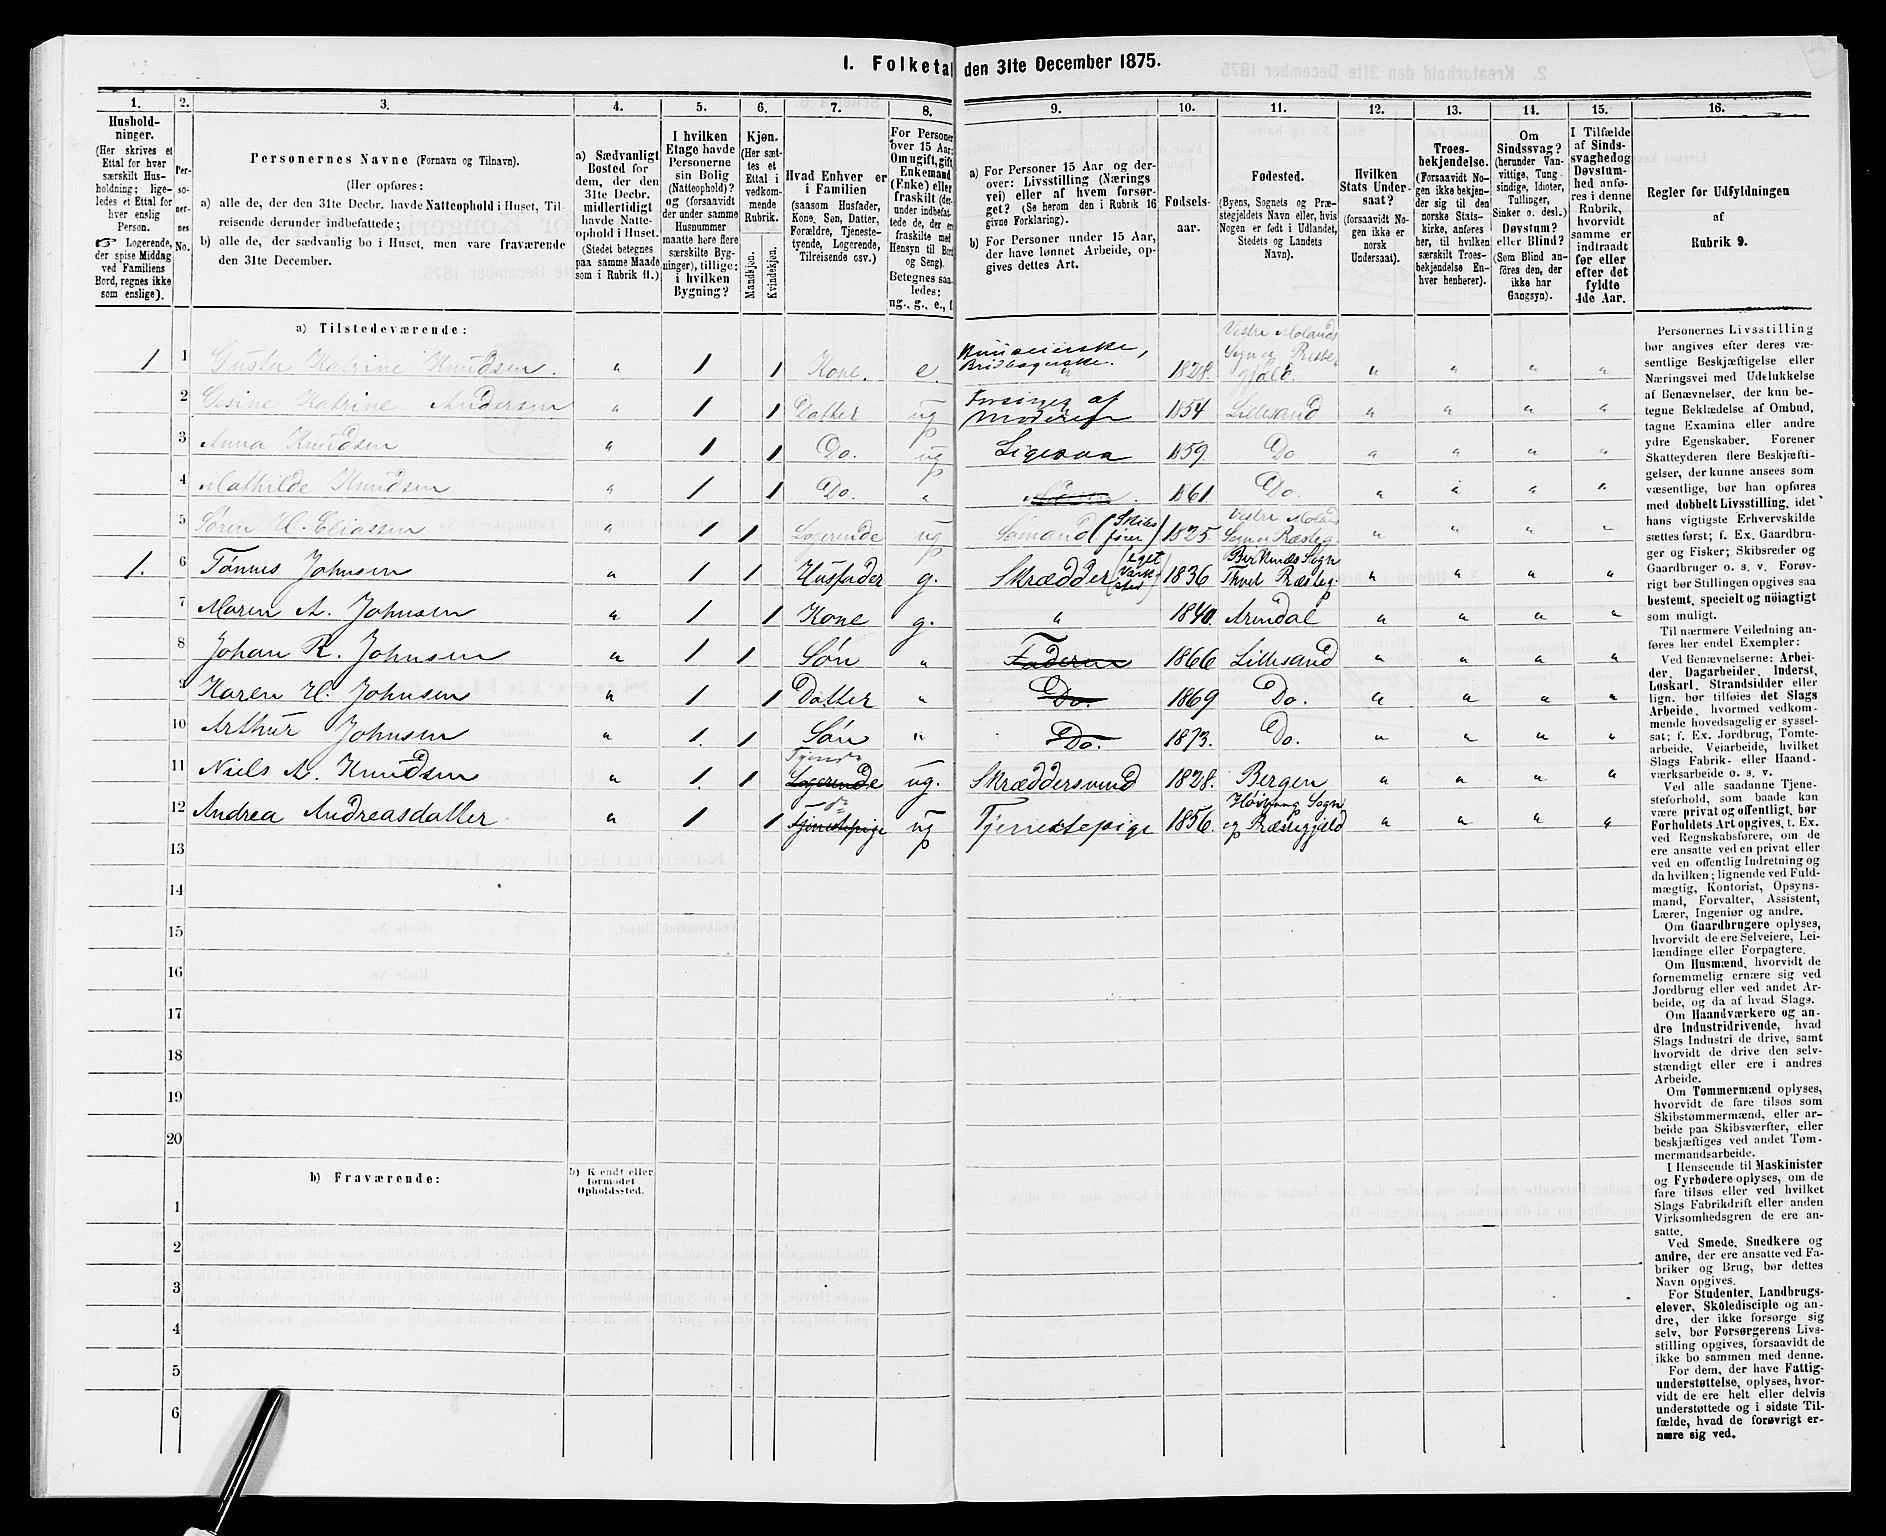 1. Folketal den 31te December 1875.
1. 2. 3. 4. 5. 6. 7. 8. 9. 10. 11. 12. 13. 14. 15. 16.
Hushold-
ninger.
(Her skrives et
Ettal for hver
særskilt Hus-
holdning; lige-
ledes et Ettal for
hver enslig
Person.
☞ Logerende,
der spise Middag
ved Familiens
Bord, regnes ikke
som enslige).
Per-
so-
ner-
nes
No.
Personernes Navne (Fornavn og Tilnavn).
(Her opføres:
a) alle de, der den 31te Decbr. havde Natteophold i Huset, Til-
reisende derunder indbefattede;
b) alle de, der sædvanlig bo i Huset, men vare fraværende
den 31te December.
a) Sædvanligt
Bosted for
dem, der den
31te Decbr.
midlertidigt
havde Natte-
ophold i Huset.
(Stedet betegnes
paa samme Maade
som i Rubrik 11.)
I hvilken
Etage havde
Personerne
sin Bolig
(Natteophold)?
og (forsaavidt
der under samme
Husnummer
maatte høre flere
særskilte Byg-
ninger), tillige:
i hvilken
Bygning?
Kjøn.
(Her sæt-
tes et
Ettal i
vedkom-
mende
Rubrik.
Mandkjøn.
Kvindekjøn.
Hvad Enhver er
i Familien
(saasom Husfader,
Kone, Søn, Datter,
Forældre, Tjeneste-
tyende, Logerende,
Tilreisende osv.)
For Personer
over 15 Aar:
Om ugift, gift,
Enkemand
(Enke) eller
fraskilt (der-
under indbefat-
tede de, der ere
fraskilte med
Hensyn til Bord
og Seng).
Betegnes saa-
ledes:
ug., g., e., f.
a) For Personer 15 Aar og der-
over: Livsstilling (Nærings
vei) eller af hvem forsør-
get? (Se herom den i Rubrik 16
givne Forklaring).
b) For Personer under 15 Aar,
der have lønnet Arbeide, op-
gives dettes Art.
Fødsels-
aar.
Fødested.
(Byens, Sognets og Præ-
stegjeldets Navn eller, hvis
Nogen er født i Udlandet,
Stedets og Landets
Navn).
Hvilken
Stats Under-
saat?
(forsaavidt No-
gen ikke er
norsk
Undersaat).
Troes-
bekjendelse.
(Forsaavidt No-
gen ikke bekjen-
der sig til den
norske Stats-
kirke, anføres
her, til hvilken
særskilt Troes-
bekjendelse En-
hver henhører).
Om
Sindssvag?
(herunder Van-
vittige, Tung-
sindige, Idioter,
Tullinger,
Sinker o. desl.)
Døvstum?
eller Blind?
(Som Blind an-
føres den, der
ikke har
Gangsyn).
I Tilfælde
af Sinds-
svaghed og
Døvstum-
hed anfø-
res i denne
Rubrik,
hvorvidt
samme er
indtraadt
før eller
efter det
fyldte
4de Aar.
Regler før Udfyldningen
af
Rubrik 9.
a) Tilstedeværende:
1 1 Gusta Katrine Knudsen. " 1 1 Kone. e. Huuseierske, Brødbagerske. 1828. Vestre Molands Sogn og Præstegjæld. " " " "
2 Gesine Katrine Andersen " 1 1 Datter ug Forsørges af Moderen 1854 Lillesand " " " "
3 Anna Knudsen " 1 1 Do. ug Ligesaa 1859. Do " " " "
4 Mathilde Knudsen " 1 1 Do. " 1861. Do. " " " "
5 Søren H. Eliassen " 1 1 Logerende ug Sømand (Skibsfører) 1825 Vestre Molands Sogn og Præsteg. " " " "
1. 6 Tønnes Johnsen " 1 1 Husfader g. Skrædder (eget Værksted) 1836 Birkenæs Sogn Thvet Præsteg. " " " "
7 Maren A. Johnsen " 1 1 Kone g. " 1840. Arendal " " " "
8 Johan R. Johnsen " 1 1 Søn " Faderen 1866 Lillesand " " " "
9 Karen H. Johnsen " 1 1 Datter " Do. 1869 Do. " " " "
10 Arthur Johnsen " 1. 1 Søn " Do. 1873. Do. " " " "
11 Niels A. Knudsen " 1. 1 Logerende Tjener ug. Skræddersvend 1828. Bergen " " " "
12 Andrea Andreasdatter " 1 1 Tjenestepige do ug Tjenestepige 1856. Høivaag Sogn og Præstegjæld " " " "
13
14
15
16
17
18
19
20
b) Fraværende:
b) Kjendt eller
formodet
Opholdssted.
1
2
3
4
5
6
Personernes Livsstilling
bør angives efter deres væ-
sentlige Beskjæftigelse eller
Næringsvei med Udelukkelse
af Benævnelser, der kun be-
tegne Beklædelse af Ombud,
tagne Examina eller andre
ydre Egenskaber. Forener
Skatteyderen flere Beskjæfti-
gelser, der kunne ansees som
væsentlige, bør han opføres
med dobbelt Livsstilling, idet
hans vigtigste Erhvervskilde
sættes først; f. Ex. Gaardbru-
ger og Fisker; Skibsreder og
Gaardbruger o. s. v. Forøv-
rigt bør Stillingen opgives saa
bestemt, specielt og nøiagtigt
som muligt.
Til nærmere Veiledning an-
føres her endel Exempler:
Ved Benævnelserne: Arbei-
der, Dagarbeider, Inderst,
Løskarl, Strandsidder eller
lign. bør tilføies det Slags
Arbeide, hvormed vedkom-
mende hovedsagelig er syssel-
sat; f. Ex. Jordbrug, Tomte-
arbeide, Veiarbeide, hvilket
Slags Fabrik- eller Haand-
værksarbeide o. s. v.
Ved alle saadanne Tjene-
steforhold, som baade kan
være privat og offentligt, bør
Forholdets Art opgives, t. Ex.
ved Regnskabsførere, om de
ere ansatte ved en privat eller
ved en offentlig Indretning og
da hvilken; lignende ved Fuld-
mægtig, Kontorist, Opsyns-
mand, Forvalter, Assistent,
Lærer, Ingeniør og andre.
Om Gaardbrugere oplyses,
hvorvidt de ere Selveiere, Lei-
lændinge eller Forpagtere.
Om Husmænd, hvorvidt de
fornemmelig ernære sig ved
Jordbrug eller ved andet Ar-
beide, og da af hvad Slags.
Om Haandværkere og an-
dre Industridrivende, hvad
Slags Industri de drive, samt
hvorvidt de drive den selv-
stændigt eller ere i andres
Arbeide.
Om Tømmermænd oplyses,
hvorvidt de fare tilsøs som
Skibstømmermænd, eller ar-
beide paa Skibsværfter, eller
beskjæftiges ved andet Tøm-
mermandsarbeide.
I Henseende til Maskinister
og Fyrbødere oplyses, om de
fare tilsøs eller ved hvilket
Slags Fabrikdrift eller anden
Virksomhedsgren de ere an-
satte.
Ved Smede, Snedkere og
andre, der ere ansatte ved Fa-
briker og Brug, bør dettes
Navn opgives.
For Studenter, Landbrugs-
elever, Skoledisciple og an-
dre, der ikke forsørge sig
selv, bør Forsørgerens Livs-
stilling opgives, forsaavidt de
ikke bo sammen med denne.
For dem, der have Fattig-
understøttelse, oplyses, hvor-
vidt de ere helt eller delvis
understøttede og i sidste Til-
fælde, hvad de forøvrigt er-
nære sig ved.